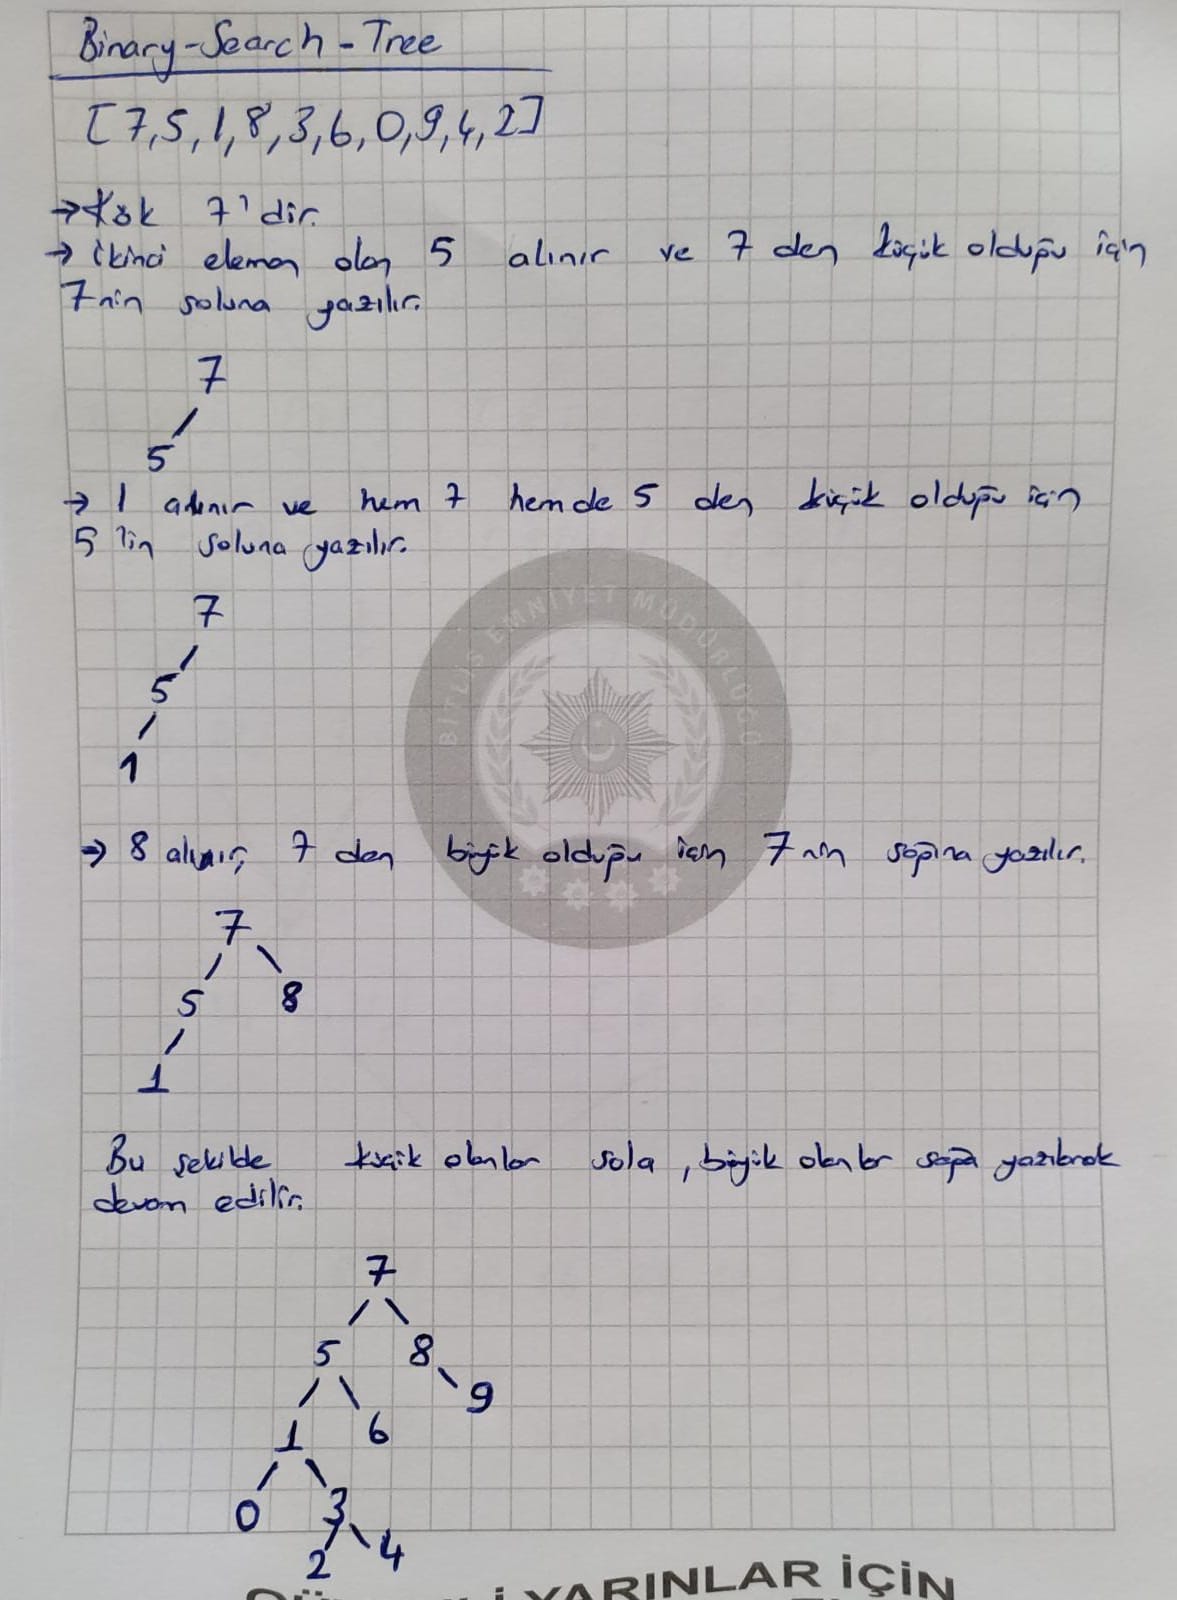 Binary-Search-Tree
[7,5,1,8,3,6,0,9,4,2]
→ Kök 7'dir.
→ ikinci eleman olan 5 alınır ve 7 den küçük olduğu için
7nin soluna yazılır.
7
5
→ 1 alınır ve hem 7 hemde 5 den küçük olduğu için
5'in soluna yazılır.
BİTLİS EMNİYET MÜDÜRLÜĞÜ
7
5
1
→ 8 alınır, 7 den büyük olduğu için 7nin sağına yazılır.
7
5 8
1
Bu şekilde küçük olanlar sola, büyük olanlar sağa yazılarak
devam edilir.
7
5 8
9
1 6
0 3
2 4
YARINLAR İÇİN